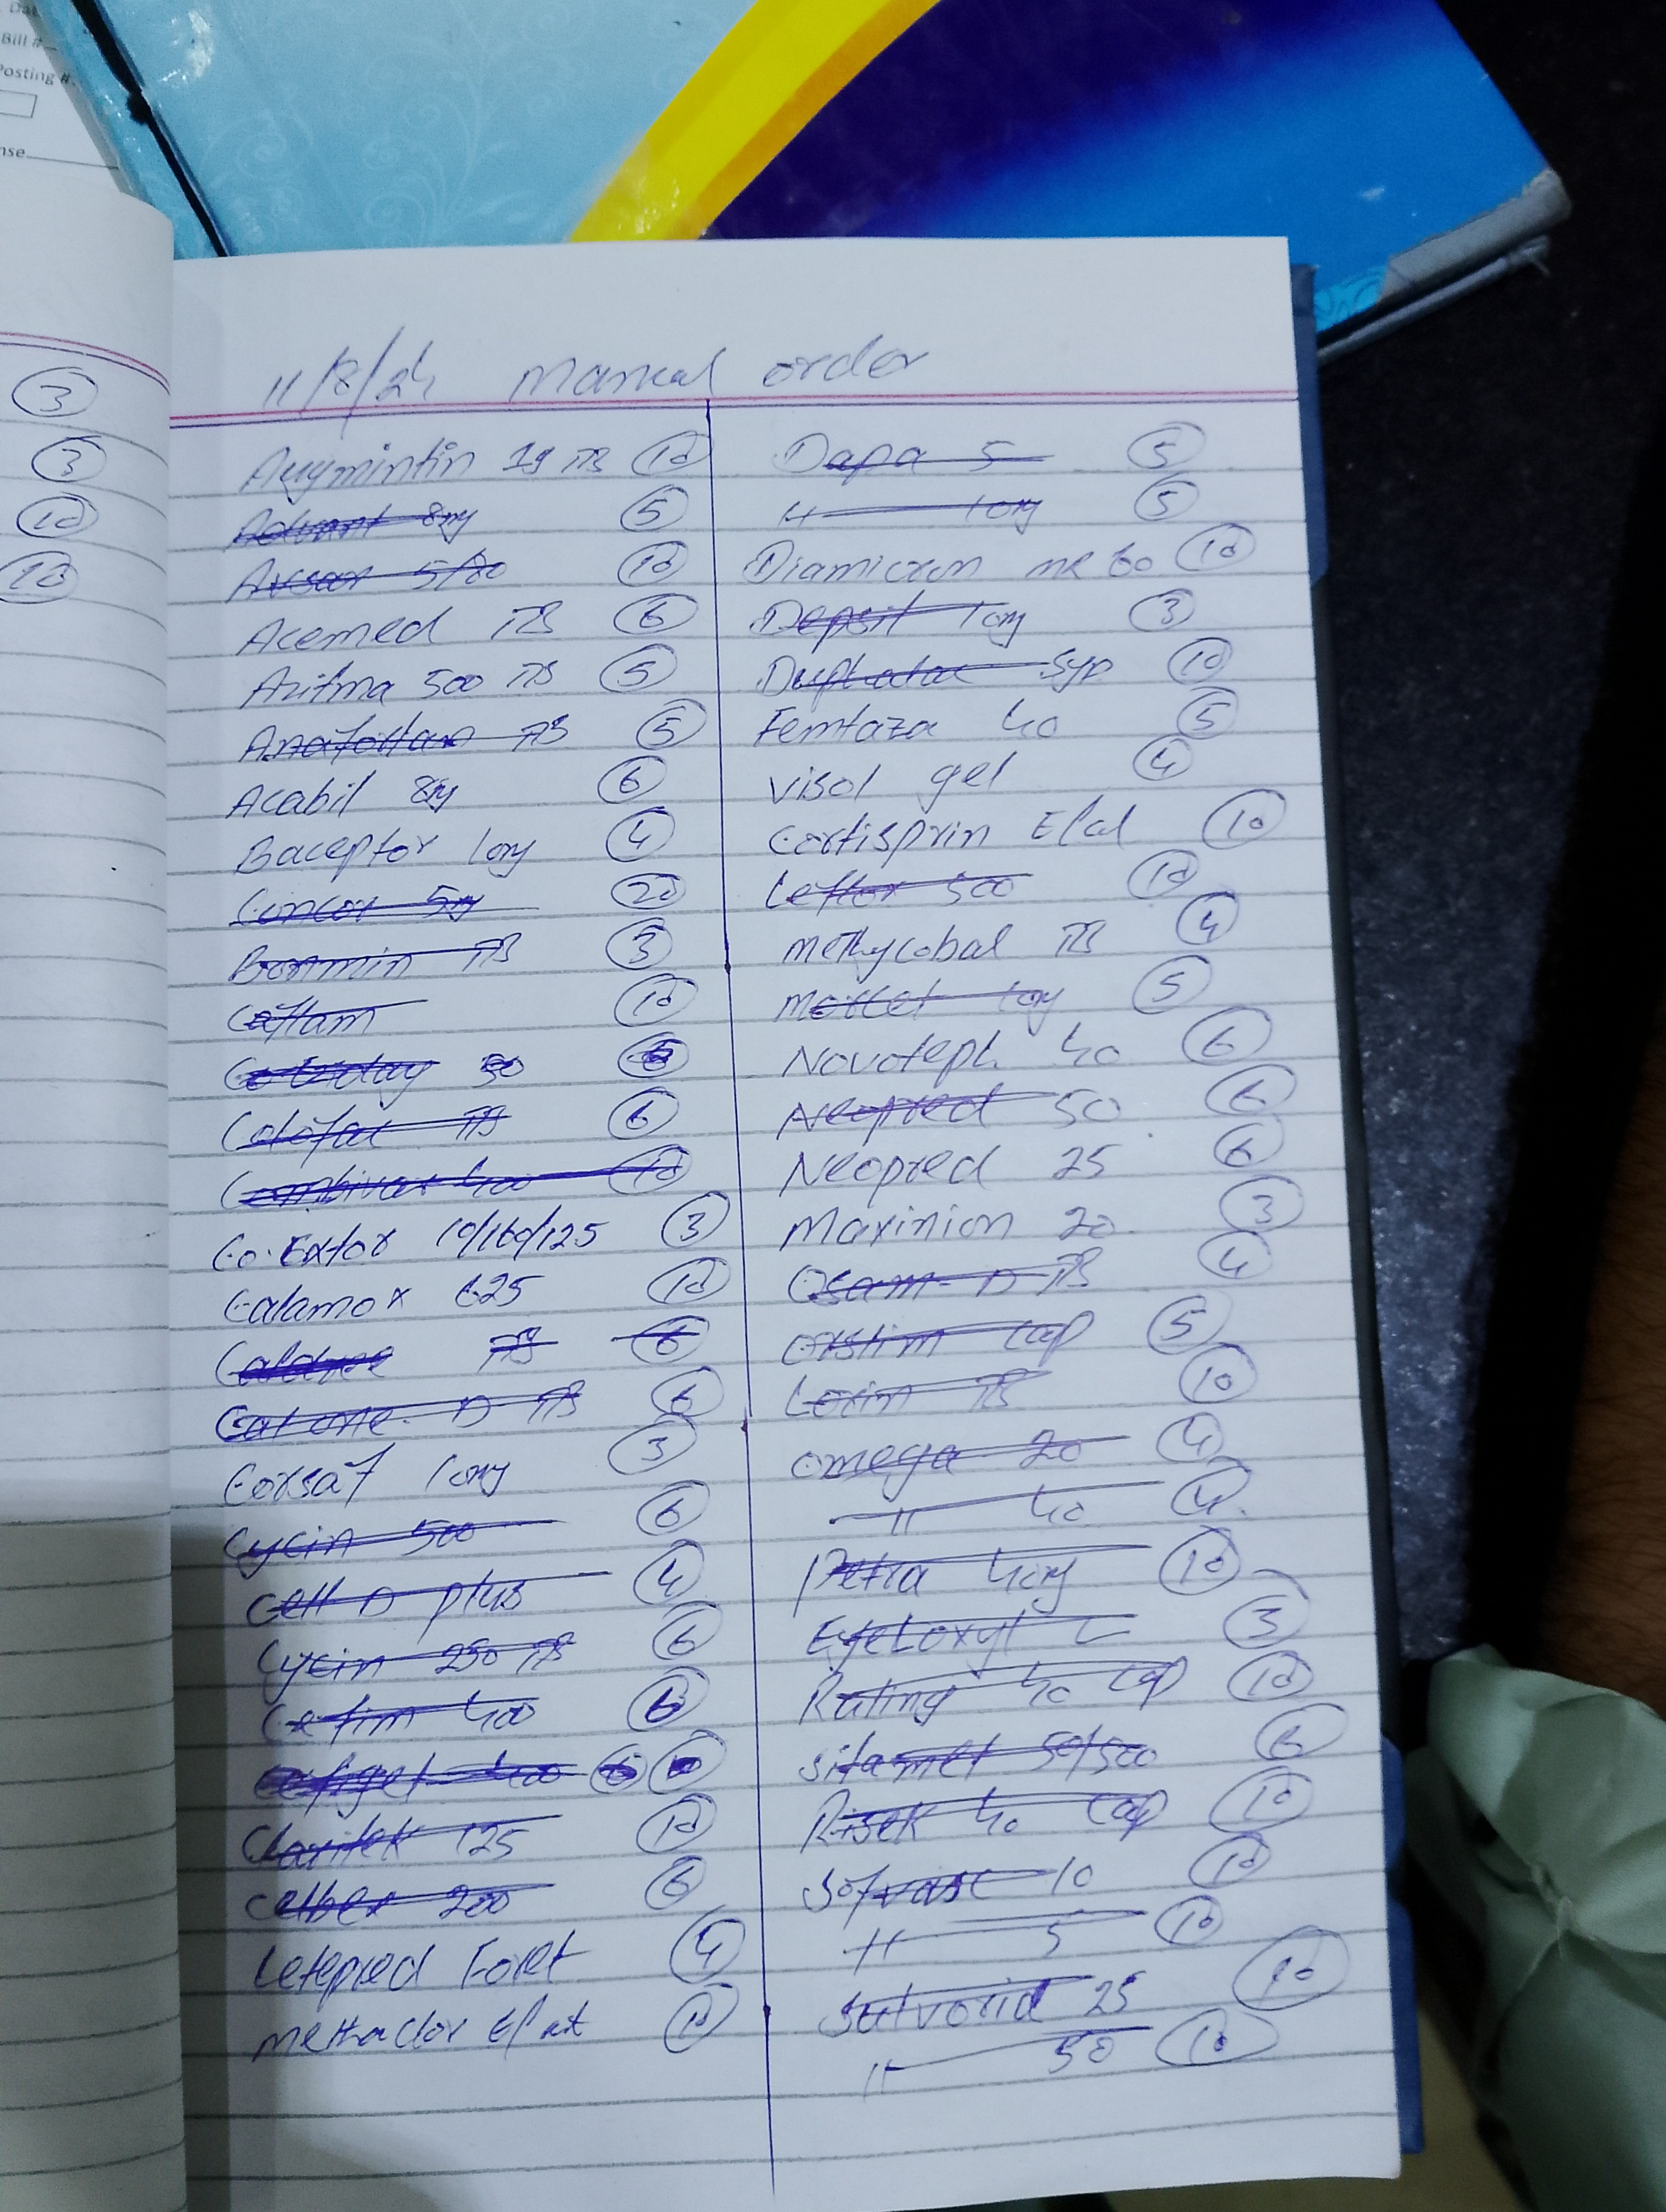 Dat
Bill #
Posting #
nse
3
3
10
10
11/8/24 Manual order
Augmintin 1g TB 10
Advant 8mg 5
Avsar 5/80 10
Acemed TB 6
Azitma 500 TB 5
Anafortan TB 5
Acabil 8mg 6
Baceptor 10mg 4
Concor 5mg 20
Bonmin TB 3
Caflam 10
50
Colofac TB 6
Combivar 400 10
Co. Extor 10/160/125 3
Calamox 625 10
TB 6
Calone. D TB 6
Corsaf 10mg 3
Cycin 500 6
Cell D plus 4
Cycin 250 TB 6
Cefim 400 6
Cefiget 400
Claritek 125 10
Celbex 200 6
Letepred Foret 4
Methaclor E/at 10
Dapa 5 5
" 10mg 5
Diamicron MR 60 10
Depsit 10mg 3
Duphalac Syp 10
Femtaza 40 5
Visol gel 4
Cortisprin E/al 10
Leflox 500 10
Methycobal TB 4
10mg 5
Novoteph. 40 6
Neopred 50 6
Neopred 25 6
Maxinion 20 3
Osam-D TB 4
Orstim Cap 5
Lorin TB 10
Omega 20 4
" 40 4
Petra 40mg 10
Eyeloxyl C 3
Ruling 40 Cap 10
Sitamet 50/500 6
Risek 40 Cap 10
Sofvasc 10 10
" 5 10
Sulvorid 25 10
" 50 10